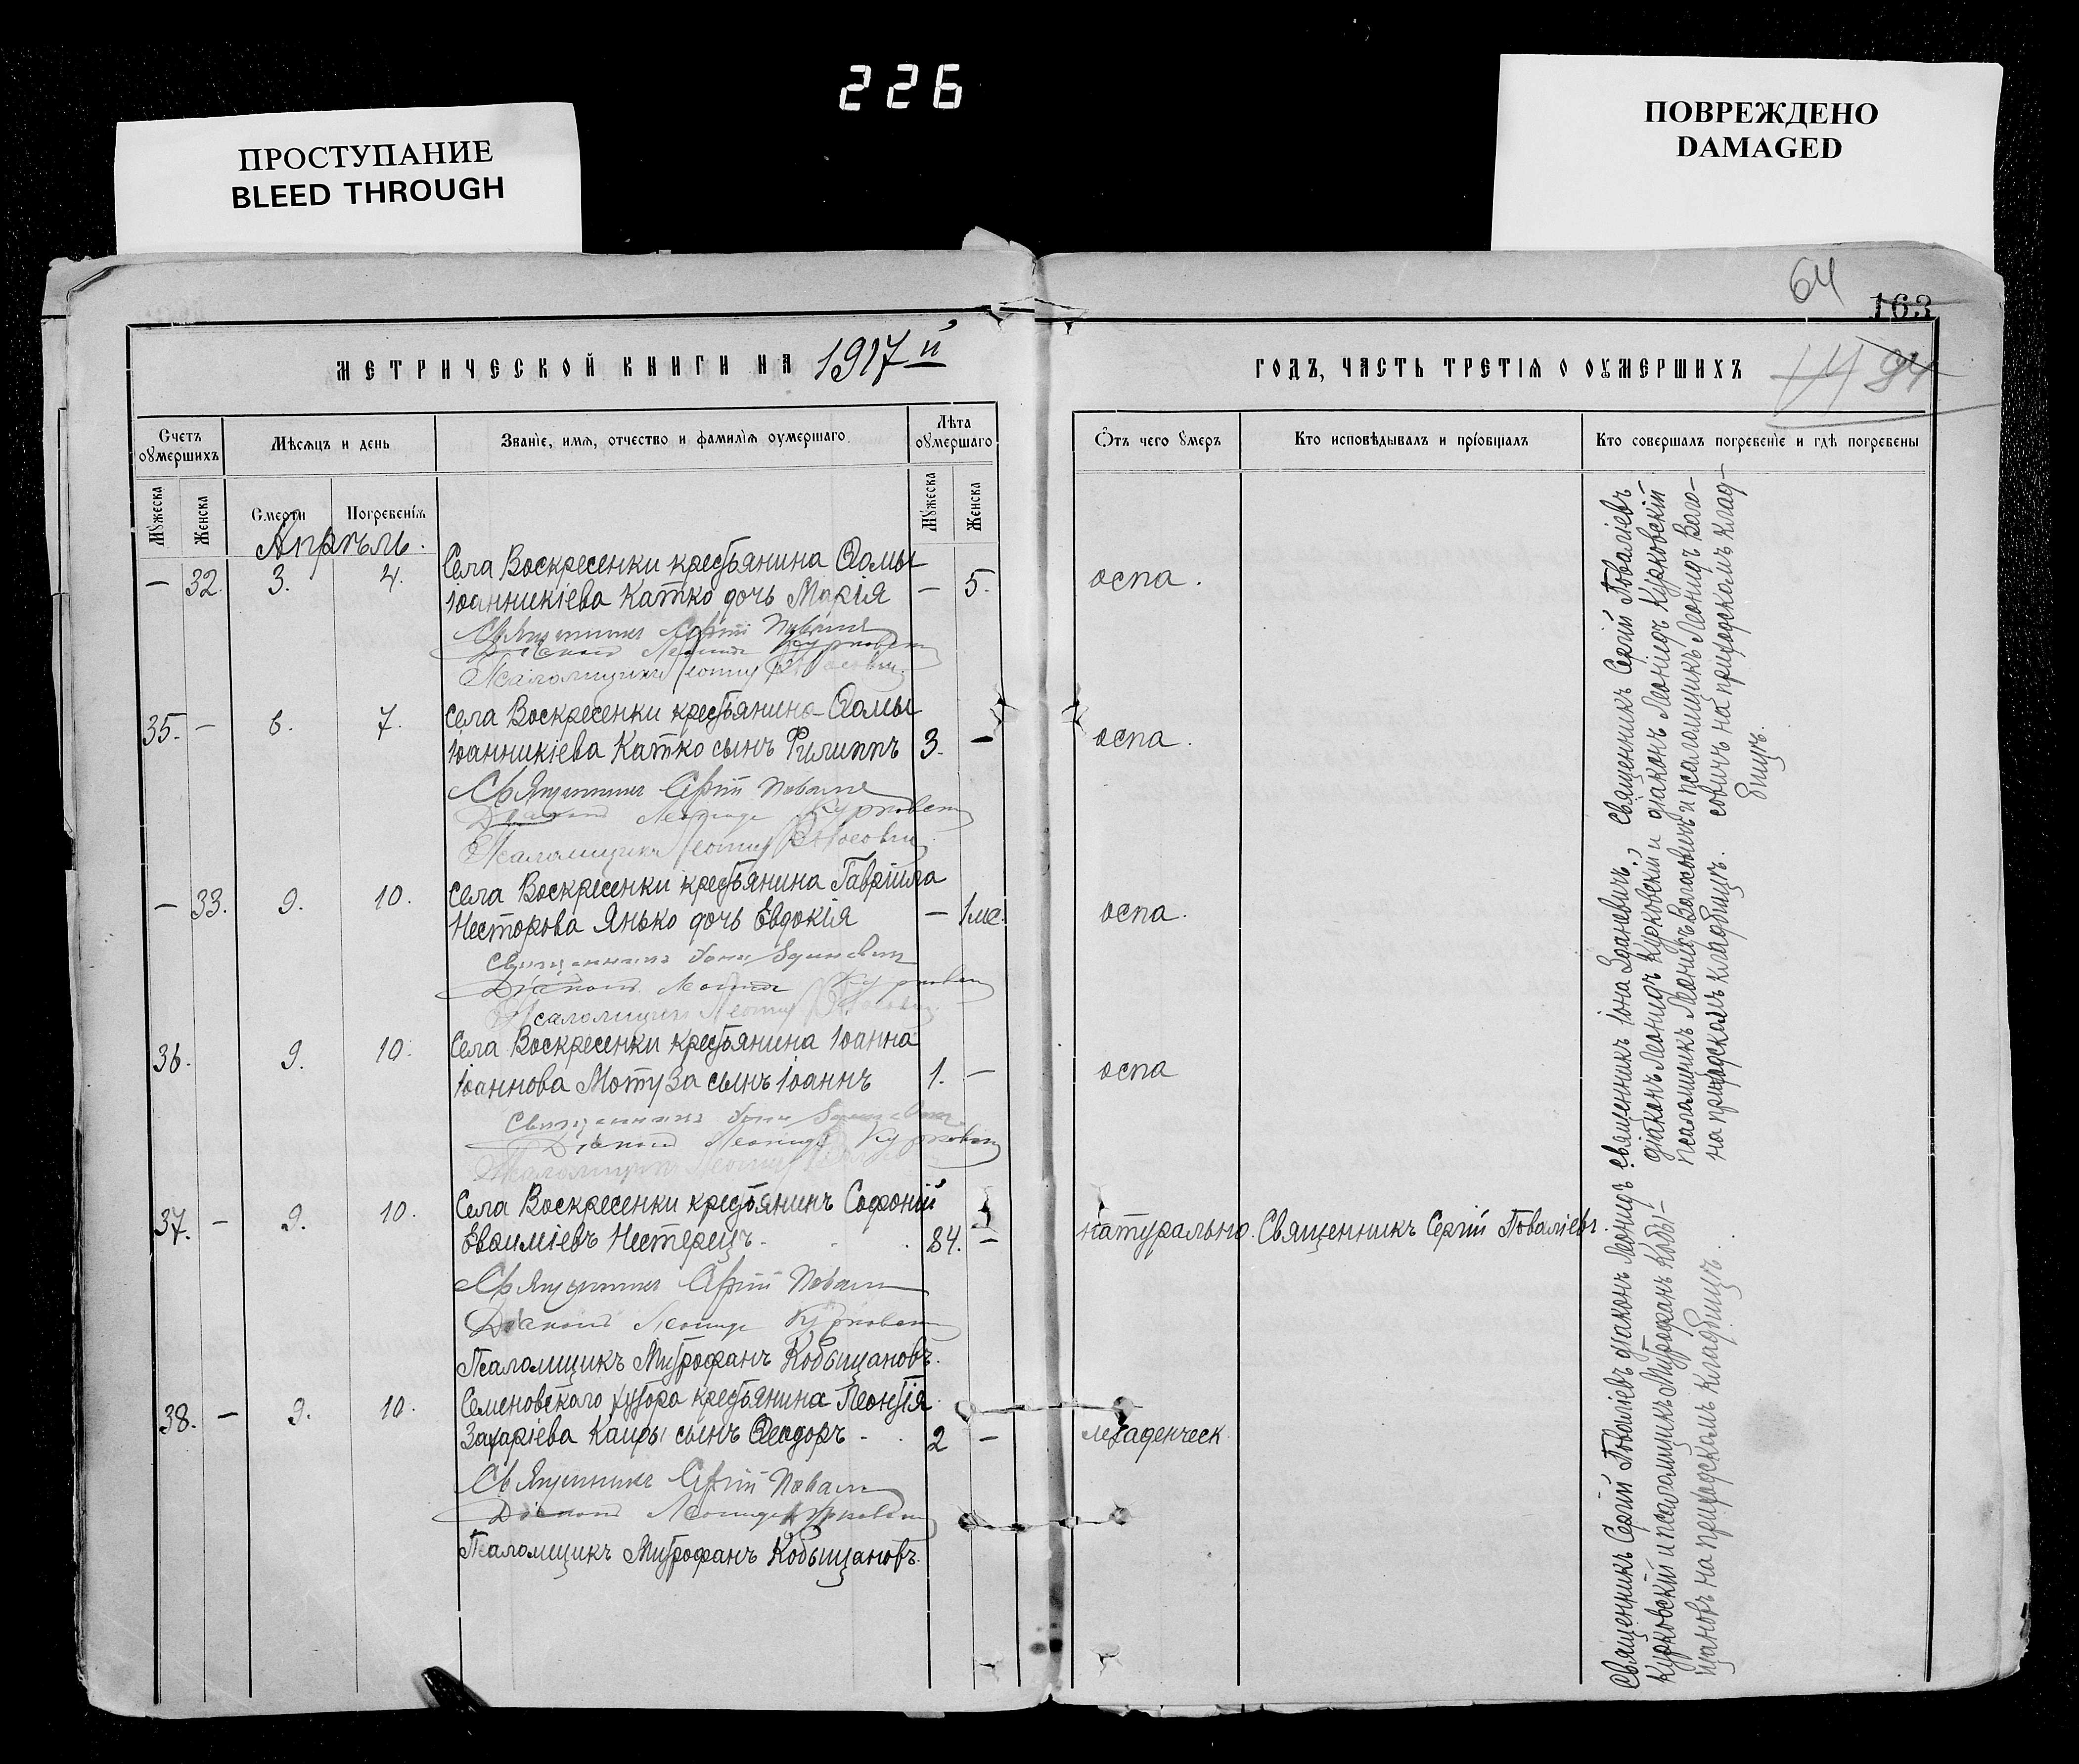 226
ПРОСТУПАНИЕ
BLEED THROUGH
ПОВРЕЖДЕНО
DAMAGED
64
163
МЕТРИЧЕСКОЙ КНИГИ НА 1917 й
Счетъ оумершихъ
Мѣсяцъ и день
Званіе, имя, отчество и фамилія оумершаго.
Лѣта оумершаго
Мужеска
Женска
Смерти
Погребенія
Мужеска
Женска
Апрѣль.
— 32. 3. 4. Села Воскресенки крестьянина Ѳомы
Іоанникіева Катко дочь Марія — 5.
Священникъ Сергій
Діаконъ Леонидъ Курковскій
Псаломщикъ Леонид
35. — 6. 7. Села Воскресенки крестьянина Ѳомы
Іоанникіева Катко сынъ Филиппъ 3. —
Священникъ Сергій
Діаконъ Леонидъ Курковскій
Псаломщикъ Леонид
— 33. 9. 10. Села Воскресенки крестьянина Гавріила
Несторова Янько дочь Евдокія — 1 мс.
Священникъ Іона
Діаконъ Леонидъ Курковскій
Псаломщикъ Леонид
36. 9. 10. Села Воскресенки крестьянина Іоанна
Іоаннова Мотуза сынъ Іоаннъ 1. —
Священникъ Іона
Діаконъ Леонидъ Курковскій
Псаломщикъ Леонид
37. — 9. 10. Села Воскресенки крестьянинъ Софоній
Евѳиміевъ Нестерецъ. 84. —
Священникъ Сергій
Діаконъ Леонидъ Курковскій
Псаломщикъ Митрофанъ Кобыщановъ.
38. — 9. 10. Семеновскаго хутора крестьянина Леонтія
Захаріева Каиры сынъ Ѳеодоръ 2 —
Священникъ Сергій
Діаконъ Леонидъ Курковскій
Псаломщикъ Митрофанъ Кобыщановъ.
ГОДЪ, ЧАСТЬ ТРЕТІЯ О ОУМЕРШИХЪ
Отъ чего умеръ
Кто исповѣдывалъ и пріобщалъ
Кто совершалъ погребеніе и гдѣ погребены
оспа.
оспа.
оспа.
оспа
натурально. Священникъ Сергій Поваліевъ.
младенческ.
Священникъ Сергій Поваліевъ
діаконъ Леонидъ Курковскій
и псаломщикъ Леонидъ Вало-
совичъ на приходскомъ клад-
бищѣ.
Священникъ Іона Зданевичъ,
діаконъ Леонидъ Курковскій и
псаломщикъ Леонидъ Валасовичъ
на приходскомъ кладбищѣ.
Священникъ Сергій Поваліевъ діаконъ Леонидъ
Курковскій и псаломщикъ Митрофанъ Кобы-
щановъ на приходскомъ кладбищѣ.